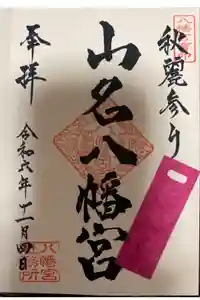 秋麗参り
山名八幡宮
奉拝
令和六年十一月四日
八幡宮
社務所